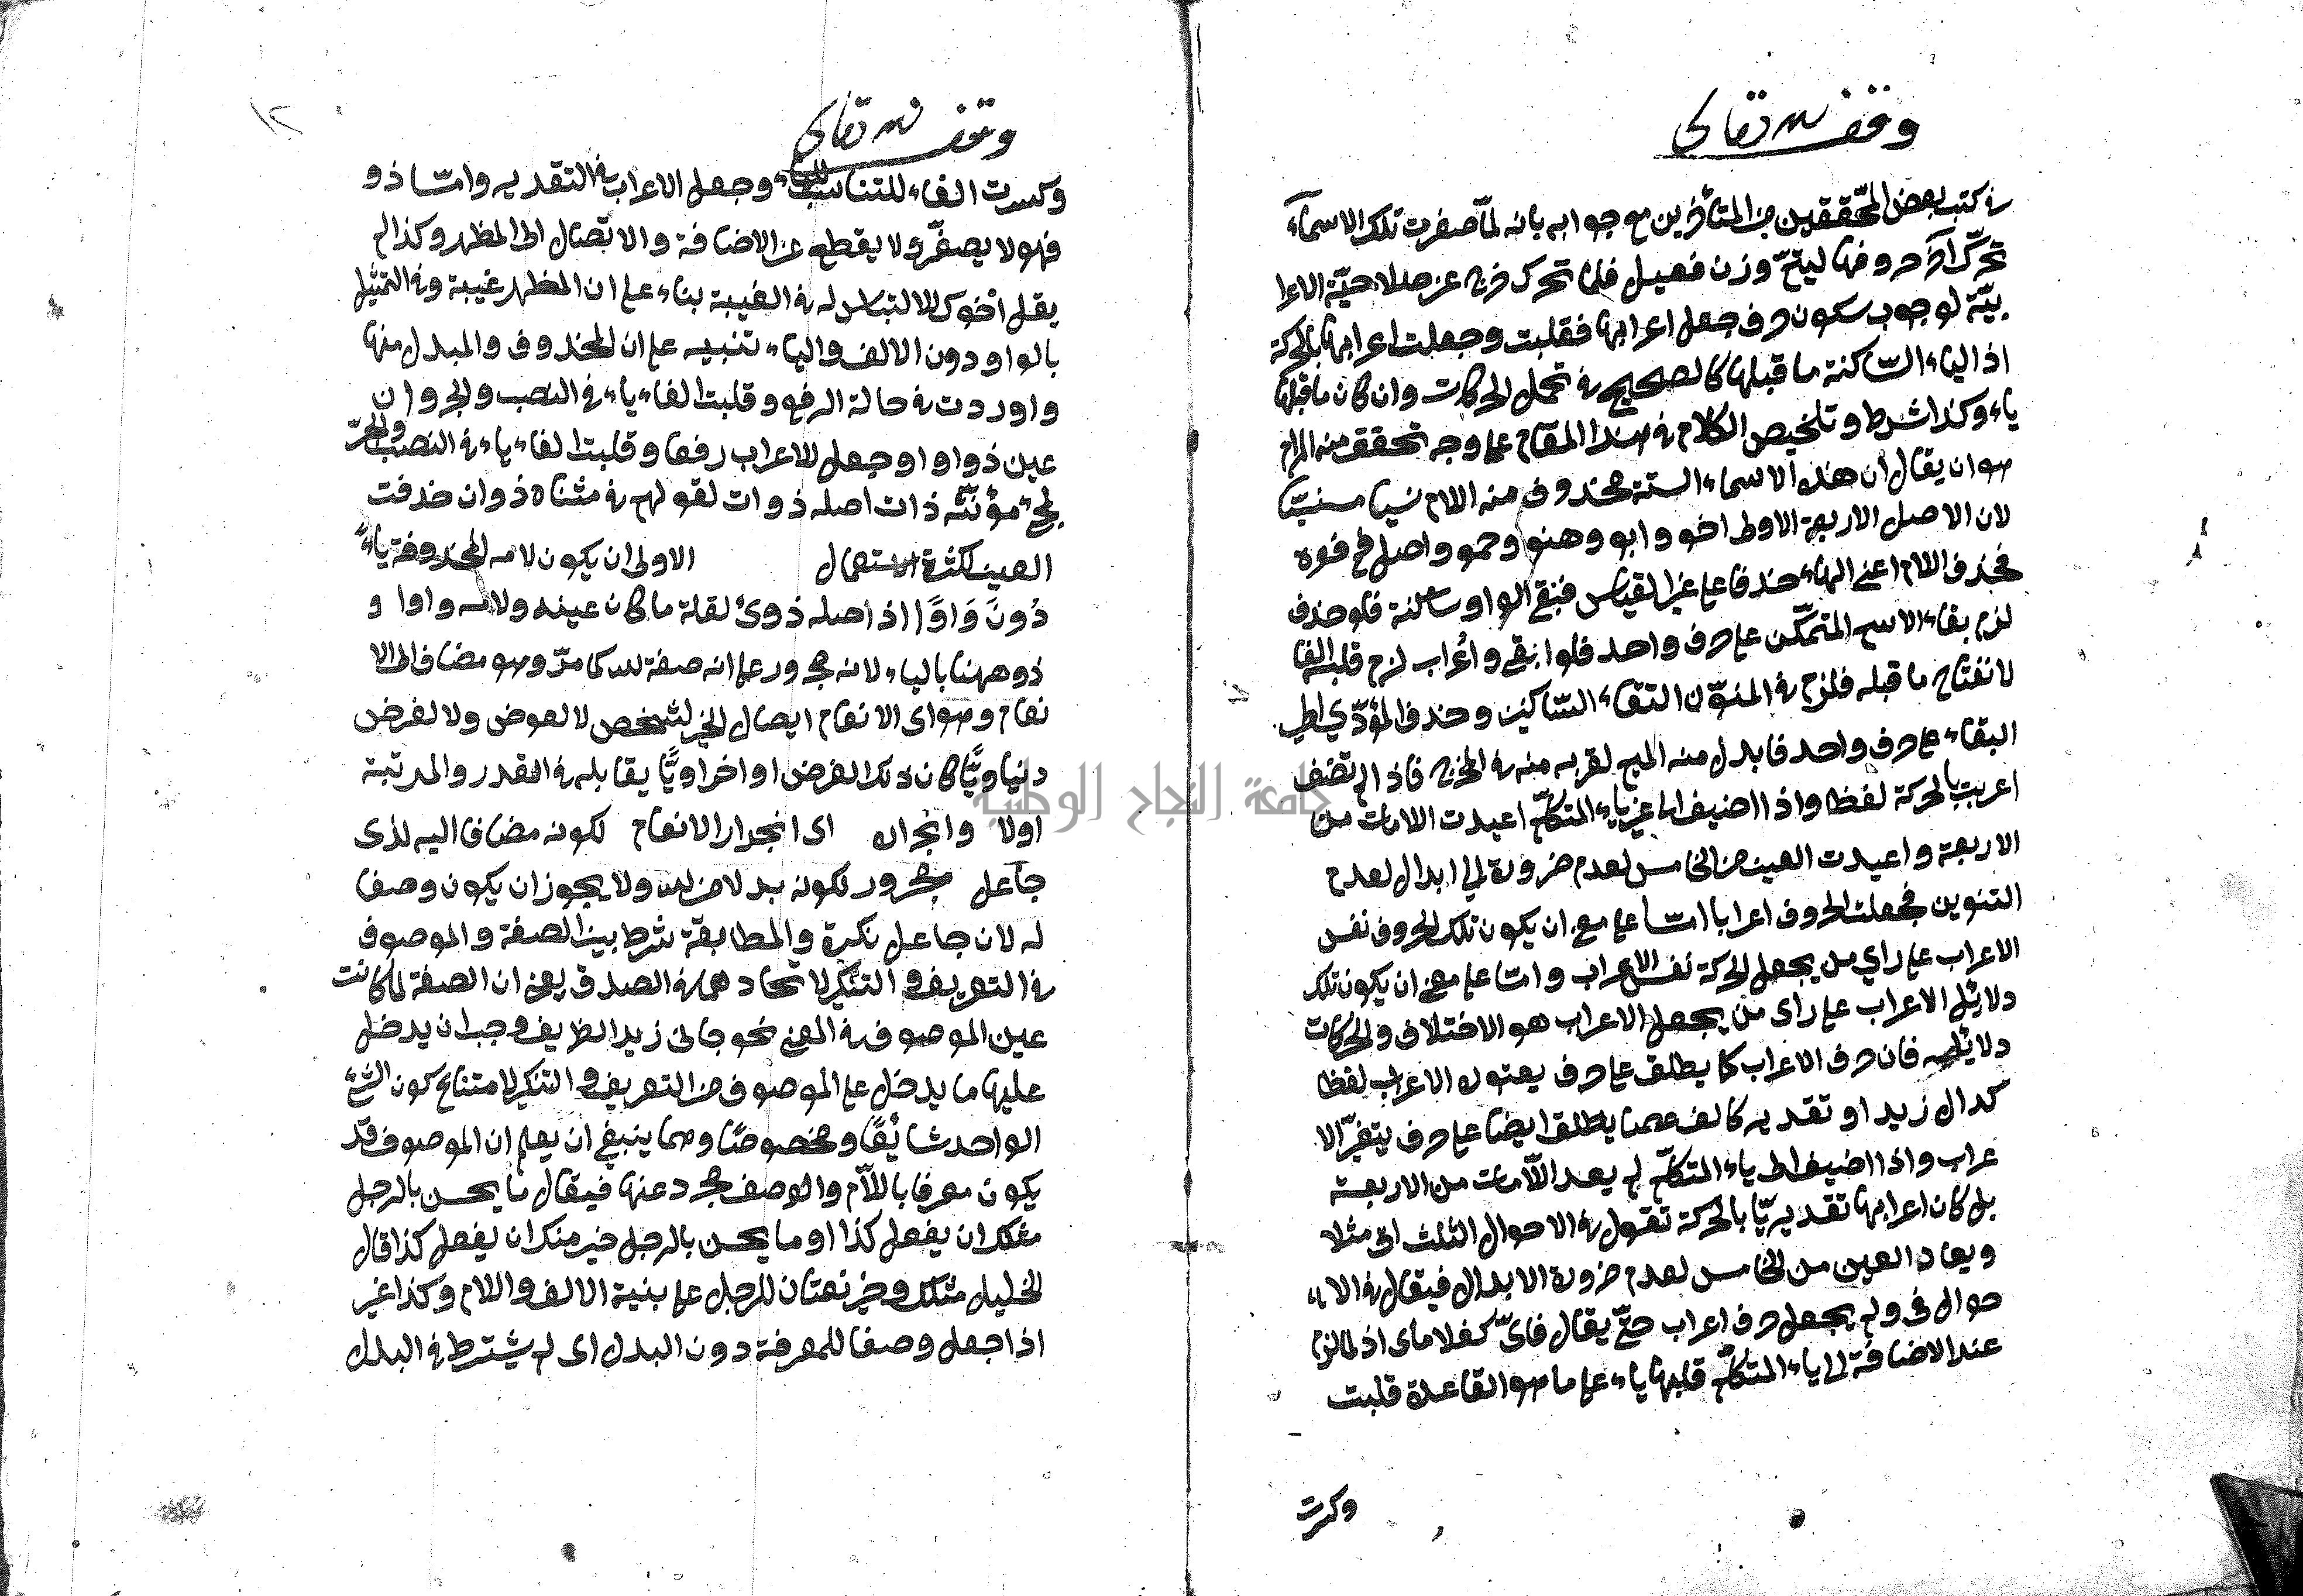 وقف لله تعالى
في كتب بعض المحققين من المتأخرين مع جوابه بانه لمّا صغرت تلك الاسماء
تحرّك آخر حروفها ليتمّ وزن فعيل فلما تحرك خرج عن صلاحيّة الاعرا
بيّة لوجوب سكون حرف جعل اعرابها فقلبت وجعلت اعرابها بالحركة
اذ الياء السّاكنة ما قبلها كالصحيح في تحمل الحركات وان كان ما قبلها
ياء وكذا شرط وتلخيص الكلام في هذا المقام على وجه تحقق منه المرام
هو ان يقال ان هذه الاسماء الستة محذوف منه اللام نسيا منسيّا
لان الاصل الاربعة الاولى اخو وابو وهنو وحمو واصل فم فوه
فحذف اللام اعنى الهاء حذفا على غير القياس فبقي الواو ساكنة فلو حذف
لزم بقاء الاسم المتمكّن على حرف واحد فلو ابقي واُعراب لزم قلبه الفا
لانفتاح ما قبله فلزم في المنوّن التقاء السّاكنين وحذف المؤدّي الى
البقاء على حرف واحد فابدل منه الميم لقربه منه في المخرج فاذا لم تضف
اعربت بالحركة لفظا واذا اضيف الى غير ياء المتكلّم اعيدت اللامات من
الاربعة واعيدت العين من الخامس لعدم ضرورة الى ابدال لعدم
التنوين فجعلت الحروف اعرابا امّا على معنى ان يكون تلك الحروف نفس
الاعراب على راي من يجعل الحركة نفس الاعراب وامّا على معنى ان يكون تلك
دلائل الاعراب على راى من يجعل الاعراب هو الاختلاف والحركات
دلائله فان حرف الاعراب كما يطلق على حرف يعتوره الاعراب لفظا
كدال زيد او تقديره كالف عصا يطلق ايضا على حرف يتغيّر الا
عراب واذا اضيف الى ياء المتكلّم لم يعد اللّامات من الاربعة
بل كان اعرابها تقديريّا بالحركة تقول في الاحوال الثلث ابى مثلا
ويعاد العين من الخامس لعدم ضرورة الابدال فيقال في الا
حوال فى ولم يجعل حرف اعراب حتّى يقال فاىّ كغلاماى اذ لما لزم
عند الاضافة الى ياء المتكلّم قلبها ياء على ما هو القاعدة قلبت
وكسرت
١٢
وقف لله تعالى
وكسرت الفاء للتناسب وجعل الاعراب في التقديره وامّا ذو
فهو لا يصغّر ولا يقطع عن الاضافة والاتصال الى المظهر وكذا لم
يقل اخوك للالتباس له في الغيبة بناء على ان المظهر غيبة وفي التمثيل
بالواو دون الالف والياء تنبيه على ان المحذوف والمبدل منها
واو ردت في حالة الرفع وقلبت الفاء ياء في النصب والجر وان
عين ذو واو وجعل للاعراب رفعا وقلبت الفاء ياء في النصب والجرّ
لمجئ مؤنثه ذات اصله ذوات لقولهم في مثناه ذوان حذفت
العين لكثرة الاستعمال الاولى ان يكون لامه المحذوفة ياءً
دُونَ وَاوًا اذ اصله ذوىٌ لقلة ما كان عينه ولامه واوا و
ذو ههنا بالياء لانه مجرور على انه صفة لله كما مرّ وهو مضاف الى الا
نعام وهو اى الانعام ايصال الخير لشخص لا لعوض ولا لغرض
دنياويًّا كان ذلك الغرض او اخراويًّا يقابله في القدر والمرتبة
اولا وانجراره اى انجرار الانعام لكونه مضافا اليه لذى
جاعل مجرور لكونه بدلا من لله ولا يجوز ان يكون وصفا
له لان جاعل نكرة والمطابقة شرط بين الصفة والموصوف
في التعريف والتنكير لاتحادهما في الصدق يعنى ان الصفة لما كانت
عين الموصوف في المعنى نحو جانى زيد الظريف وجب ان يدخل
عليها ما يدخل على الموصوف من التعريف والتنكير لامتناع كون الشئ
الواحد شائعًا ومخصوصًا ومما ينبغي ان يعلم ان الموصوف قد
يكون معرفا باللّام والوصف مجرد عنها فيقال ما يحسن بالرجل
مثلك ان يفعل كذا او ما يحسن بالرجل خير منك ان يفعل كذا قال
الخليل مثلك وخير نعتان للرجل على بنية الالف واللام وكذا غير
اذا جعل وصفا للمعرفة دون البدل اى لم يشترط في البدل
جامعة النجاح الوطنية